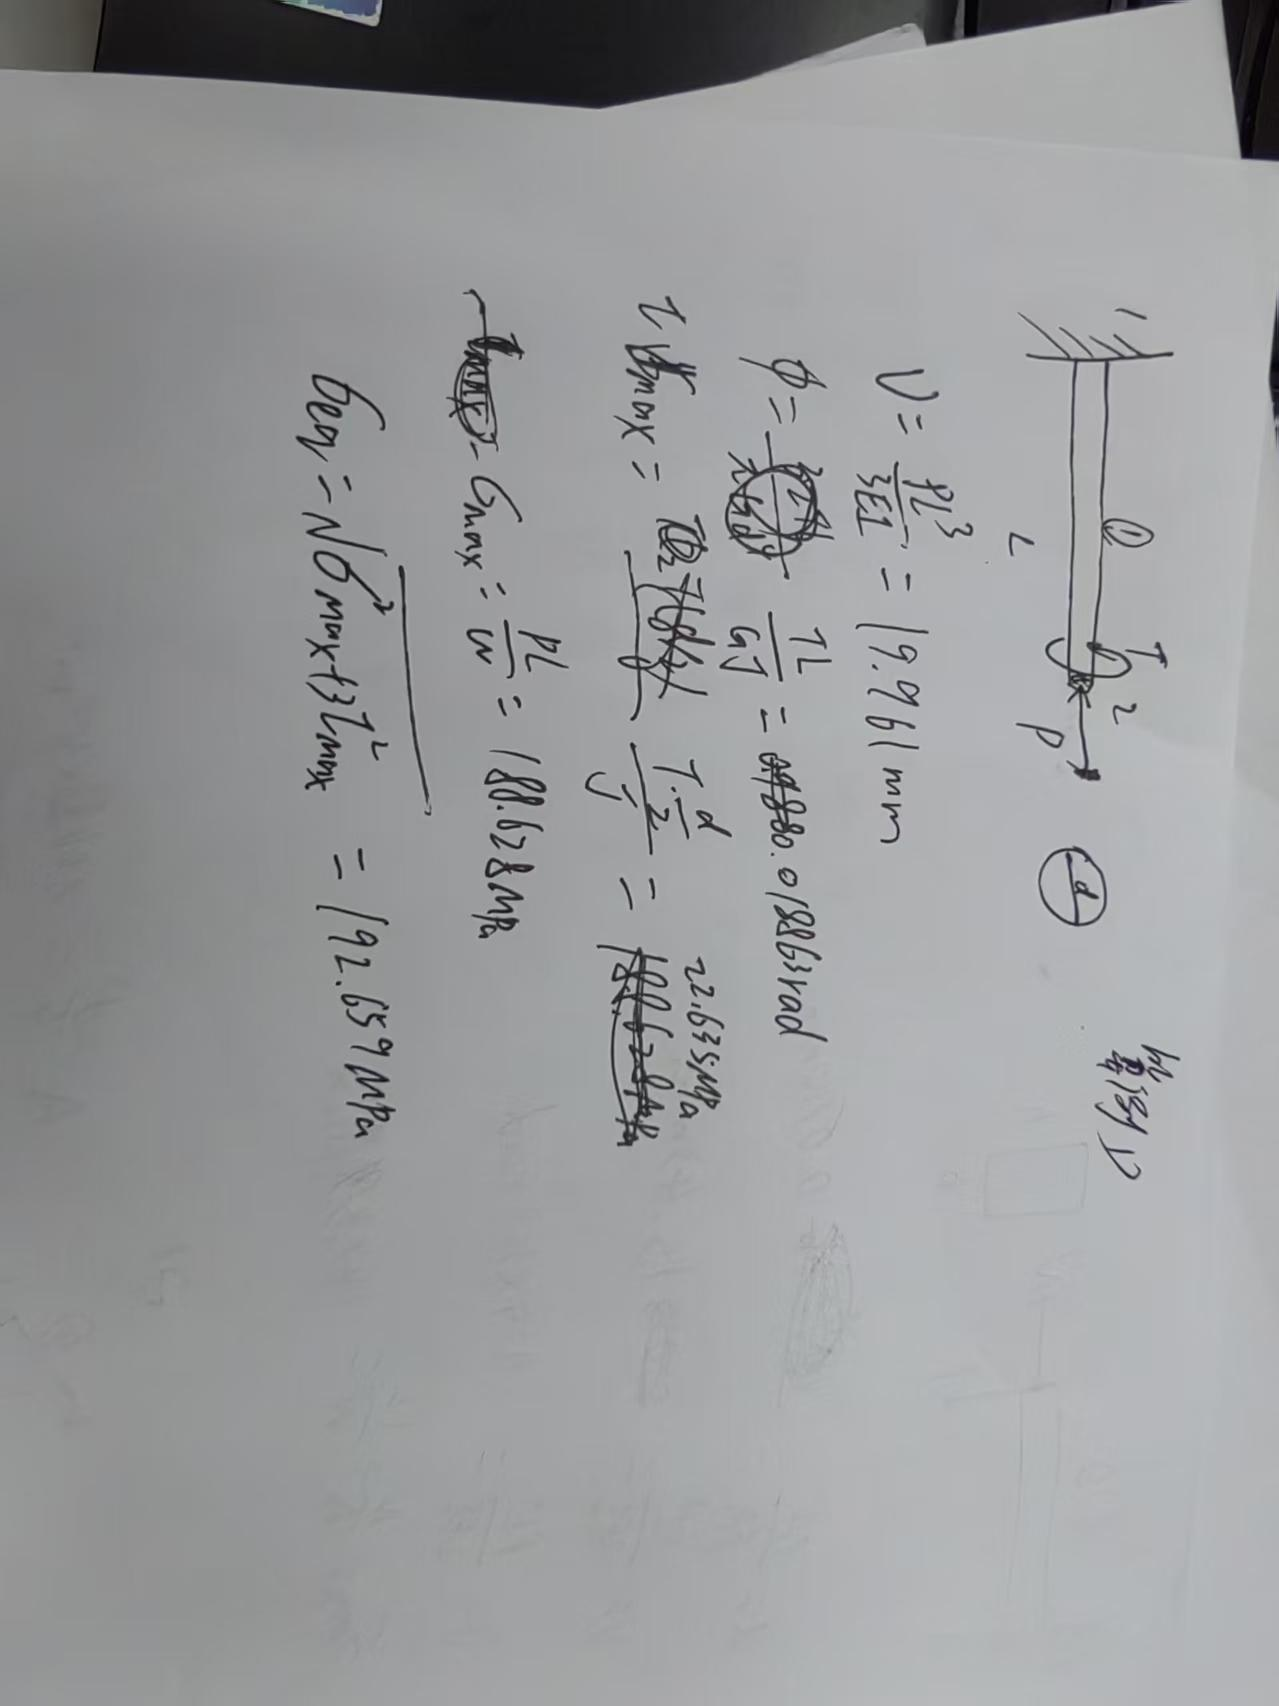 算例1
1 ① T 2
L P d
υ = PL³/3EI = 19.961mm
φ = TL/GJ = 0.018863rad
τmax = T·d/2/J = 22.635MPa
σmax = PL/W = 188.628MPa
σeq = √σ²max+3τ²max = 192.659MPa